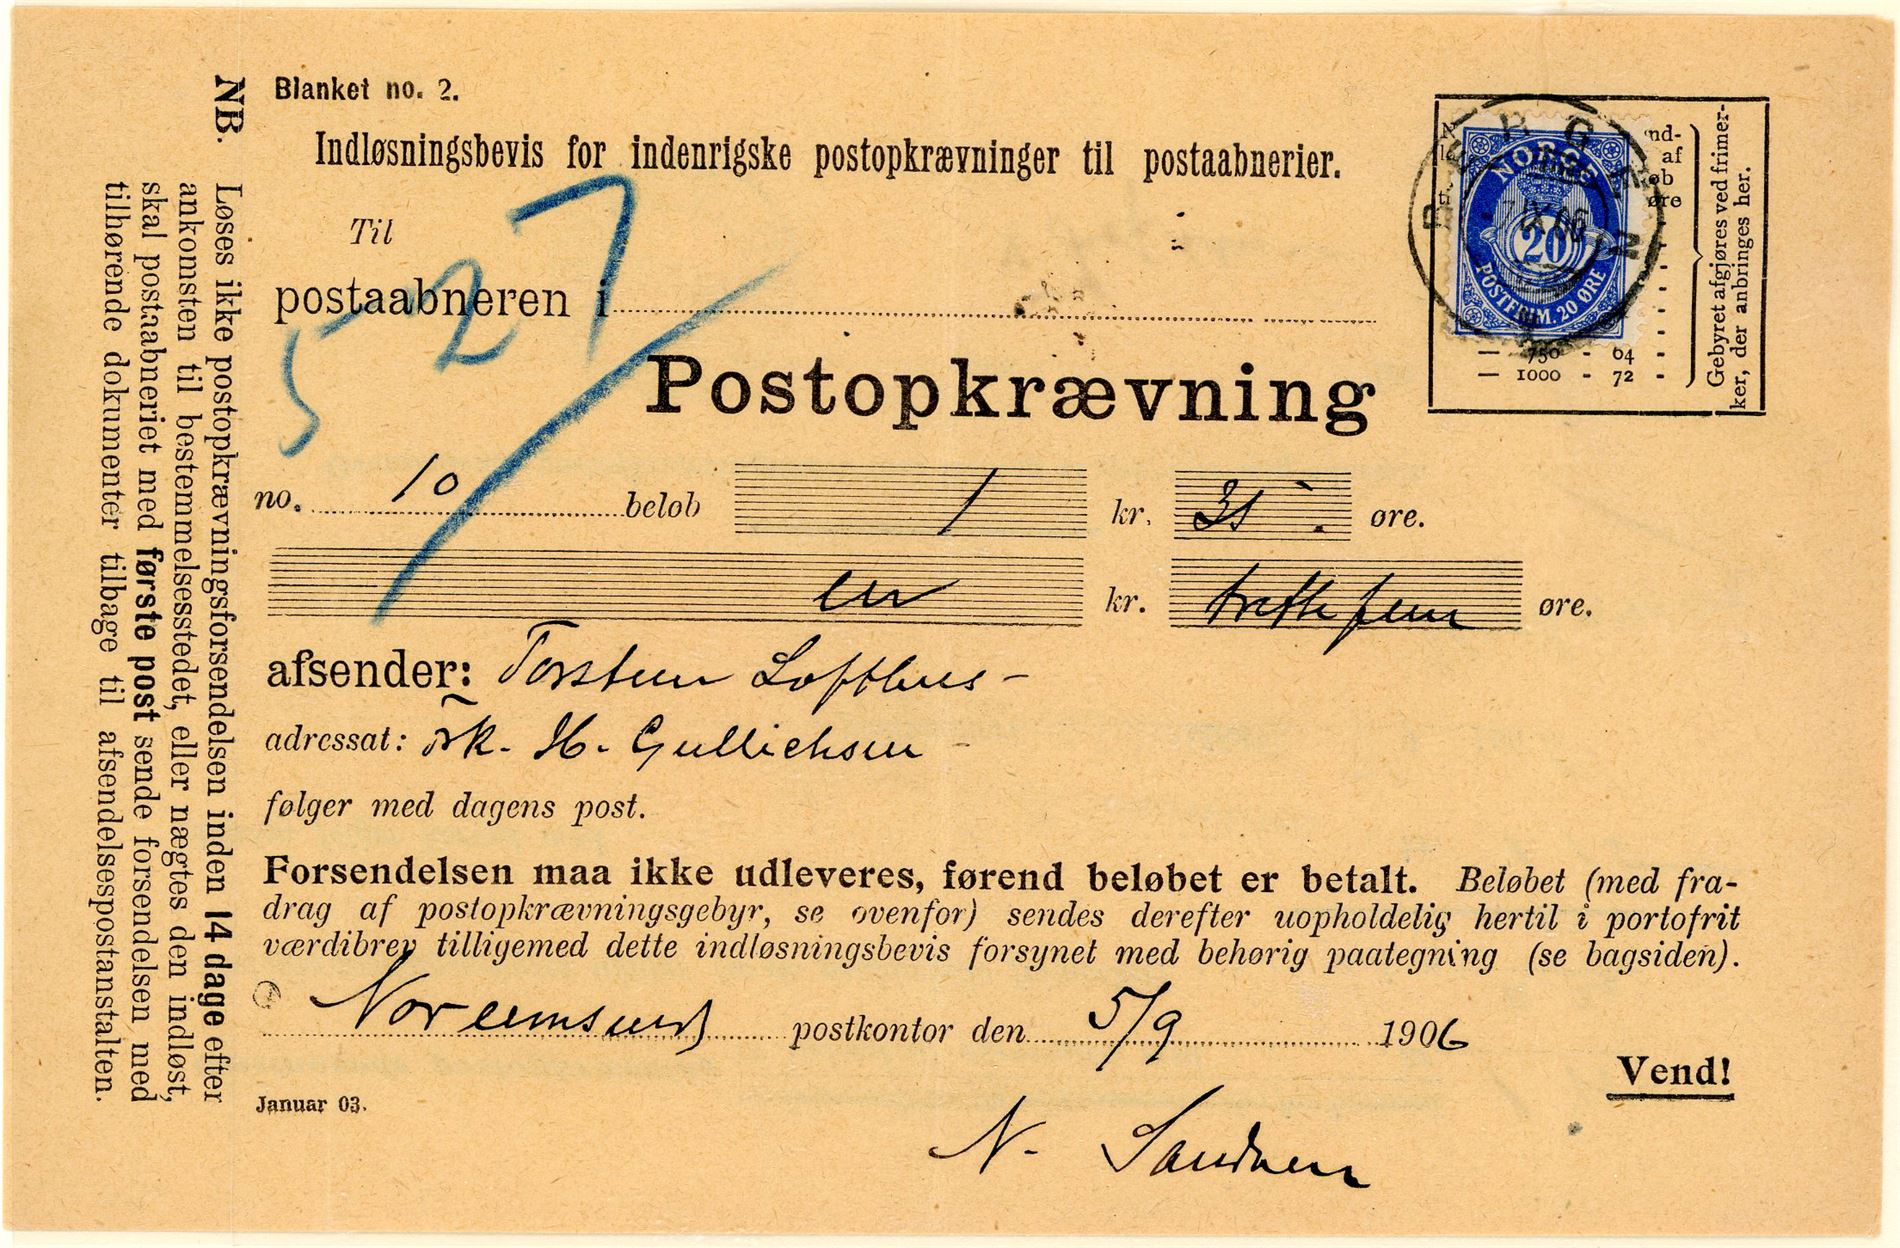 Blanket no. 2.
Indløsningsbevis for indenrigske postopkrævninger til postaabnerier.
Til
postaabneren i
527
Postopkrævning
no. 10 beløb 1 kr. 35 . øre.
en kr. tretti fem øre.
afsender: Torstein Lofthus -
adressat: Frk. H. Gullichsen -
følger med dagens post.
Forsendelsen maa ikke udleveres, førend beløbet er betalt. Beløbet (med fra-
drag af postopkrævningsgebyr, se ovenfor) sendes derefter uopholdelig hertil i portofrit
værdibrev tilligemed dette indløsningsbevis forsynet med behørig paategning (se bagsiden).
Noreimsund postkontor den 5/9 1906
Vend!
Januar 03.
N. Sandven
NB. Løses ikke postopkrævningsforsendelsen inden 14 dage efter
ankomsten til bestemmelsesstedet, eller nægtes den indløst,
skal postaabneriet med første post sende forsendelsen med
tilhørende dokumenter tilbage til afsendelsespostanstalten.
BERGEN
7 IX 06
NORGE
20
POSTFRIM. 20 ØRE
nd-
af
øb
øre
— 750 - 64 -
— 1000 - 72 -
Gebyret afgjøres ved frimer-
ker, der anbringes her.